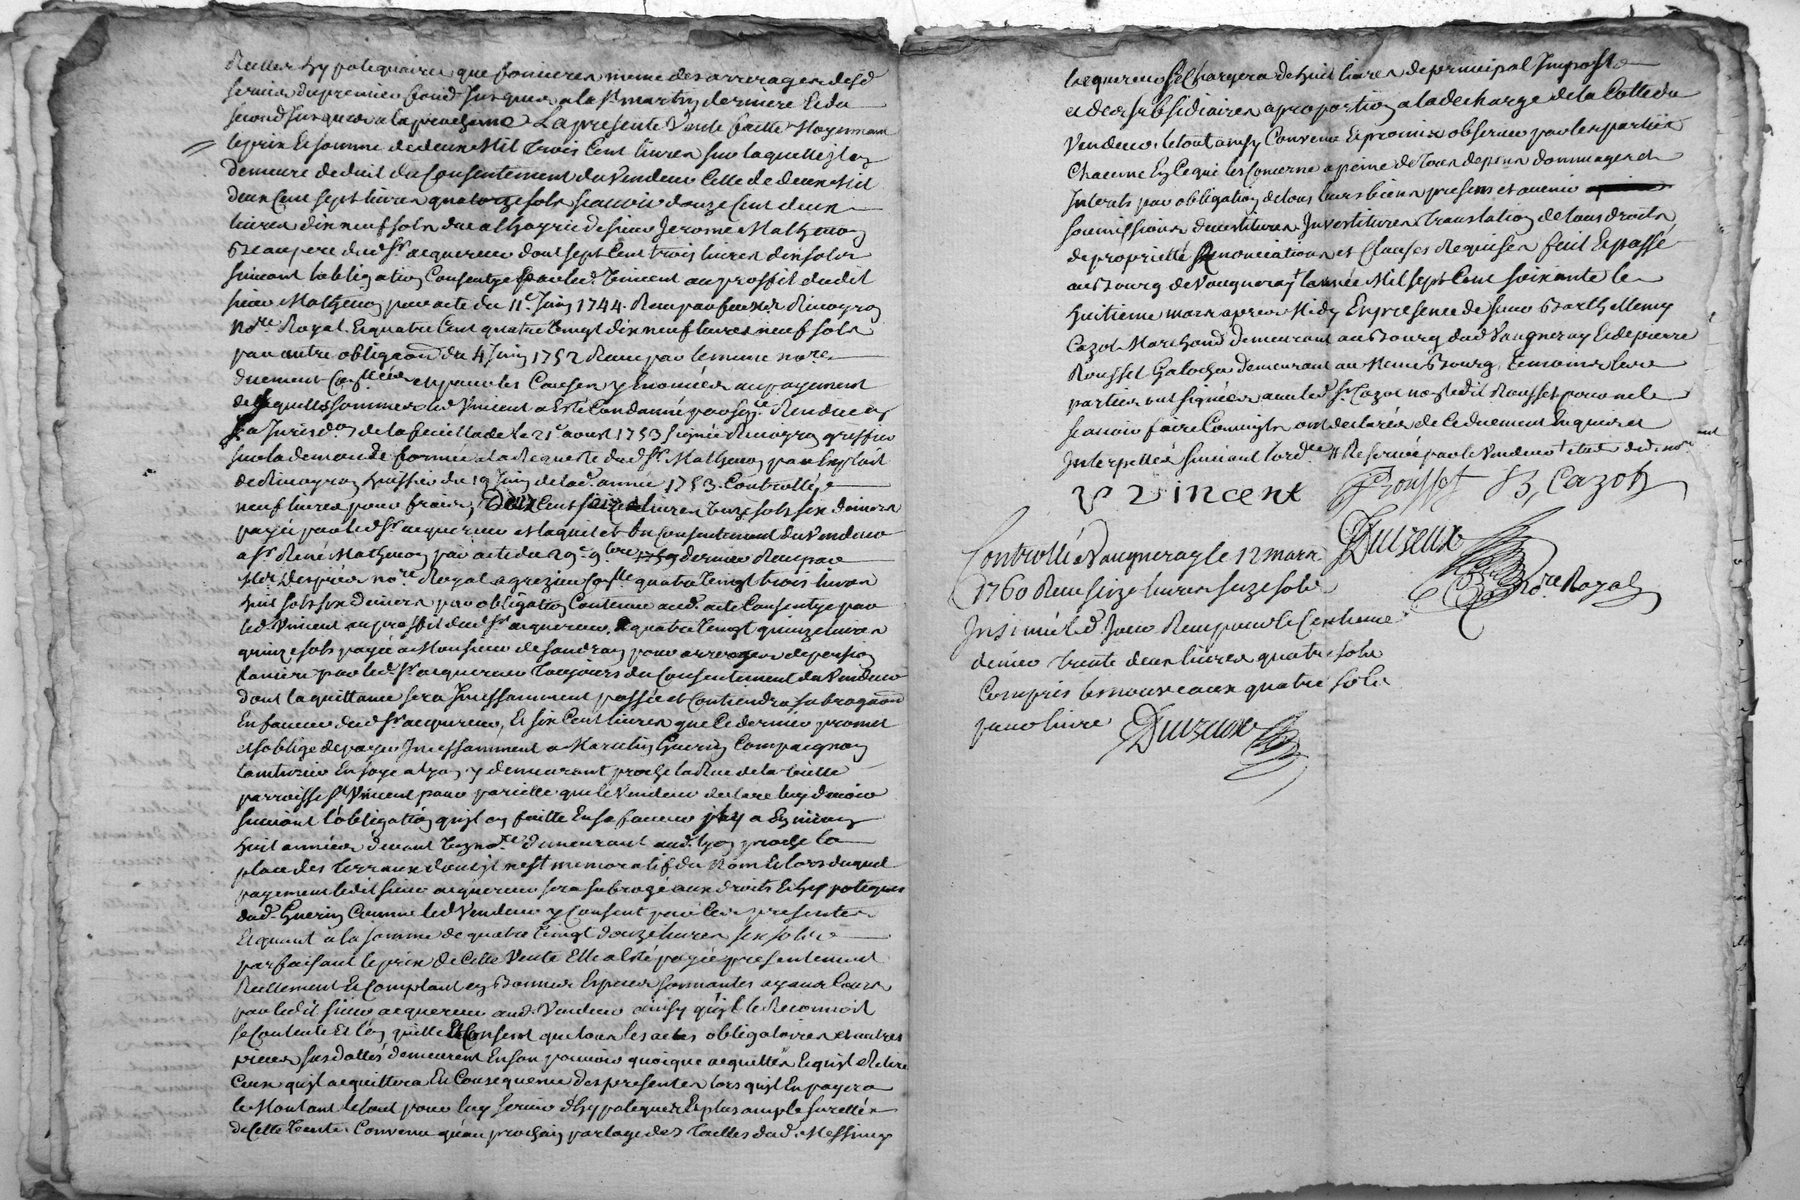 Reelles hypotequaires que foncieres meme des arrerages desd
servis du premier fond Jusques a la St martin derniere Et du
second Jusques a la prochaine La presente Vente faitte Moyennant
le prix Et somme de deux Mil Trois Cent livres sur laquelle il en
demeure deduit du Consentement du Vendeur Celle de deux Mil
deux Cent sept livres quatorze sols scavoir douze Cent deux
livres dix neuf sols due a hoyrie de sieur Jerome Mathevon
Beaupere dud Sr acquereur dont sept Cent trois livres dix sols
suivant l'obligation Consentye par led. Vincent au proffit dudit
sieur Mathevon par acte du 11e Juin 1744. Reçu par feu Me Rivoyron
Nore Royal Et quatre Cent quatre Vingt dix neuf livres neuf sols
par autre obligaon du 4 Juin 1752 Reçue par le meme nore
duement Collée et pour les Causes y Enoncées au payement
desquelles sommes led Vincent a Esté Condanné par Sence. Rendue en
La Jurisdon de la feuillade le 21e aoust 1753 Signée Rivoyron greffier
sur la demande formée a la Requeste dud Sr. Mathevon par Exploit
de Rivoyron huissier du 19 Juin de lad. année 1753. Controllé
neuf livres pour frais, Deux Cent seize livres Onze sols six deniers
payée par led Sr acquereur et laquit et du Consentement du Vendeur
a Sr René Mathevon par acte du 29e 9bre 1759 dernier Reçu par
Me Després nore. Royal a grezieu quatre Vingt trois livres
huit sols six deniers par obligation Contenue aud. acte Consentye par
led Vincent au proffit dud Sr acquereur, Et quatre Vingt quinze livres
quinze sols payée a Monsieur de fondras pour arrerages de pension
fonciere par led Sr acquereur Toujours du Consentement du Vendeur
dont la quittance sera Jncessamment passée et Contiendra subrogaon
En faveur dud Sr acquereur, Et six Cent livres que Ce dernier promet
et s'oblige de payer Jncessamment a Marcelin Guerin Compaignon
Teinturier En soye a Lyon y demeurant proche la Rue de la Vieille
parroisse St Vincent pour pareille que le Vendeur declare luy devoir
suivant l'obligation qu'il en faitte En sa faveur il y a Environ
huit années devant Un nore demeurant aud. Lyon proche la
place des Terreaux dont il n'est memoratif du Nom Et lors duquel
payement ledit sieur acquereur sera subrogé aux droits Et hypoteques
dud. Guerin Comme led Vendeur y Consent par les presentes
Et quant a la somme de quatre Vingt douze livres six sols
parfaisant le prix de Cette Vente Elle a Eté payée presentement
Reellement Et Comptant en Bonnes Especes sonnantes ayant Cours
par ledit sieur acquereur aud. Vendeur ainsy qu'il le Reconnoit
se Contente Et l'en quitte Et Consent que tous les actes obligatoires et autres
pieces susdattés demeurent En son pouvoir quoique acquittés Et qu'il Retire
Ceux qu'il acquittera En Consequence des presentes lors qu'il En payera
le Montant le tout pour luy servir d'hypoteques Et plus ample suretté
de Cette Vente. Convenu qu'au prochain partage des Tailles dud. Messimy
lacquereur se Chargera de huit livres de principal Impost
et des subsidiaires a proportion a la decharge de la Cotte du
Vendeur. le tout ainsy Convenu Et promis observer par les parties
Chacune En Ce qui les Concerne a peine de Tous depens dommages et
Interets par obligation de tous leurs biens presens et avenir
soumissions devestitures Investitures Translation de tous droits
de propriété Renonciations et Clauses Requises fait Et passé
au Bourg de Vaugneray lannée Mil sept Cent soixante le
huitieme mars apres Midy En presence de sieur Barthelemy
Cazot Marchand demeurant au Bourg dud Vaugneray Et de pierre
Rousset Galocher demeurant au Meme Bourg, Temoins les
parties ont signées avec led Sr Cazot non ledit Rousset pour ne le
scavoir faire Comm'ils ont declarés de Ce duement Enquis et
Interpellés suivant lordce # Reservée par le Vendeur † etude dud. nore
Vincent Prousset B, Cazot
Duizeux
nore Royal
Controllé a Vaugneray le 12 mars
1760 Reçu seize livres seize sols
Insinué led Jour Reçu pour le Centieme
denier trente deux livres quatre sols
Compris les nouveaux quatre sols
pour livre Duizeux